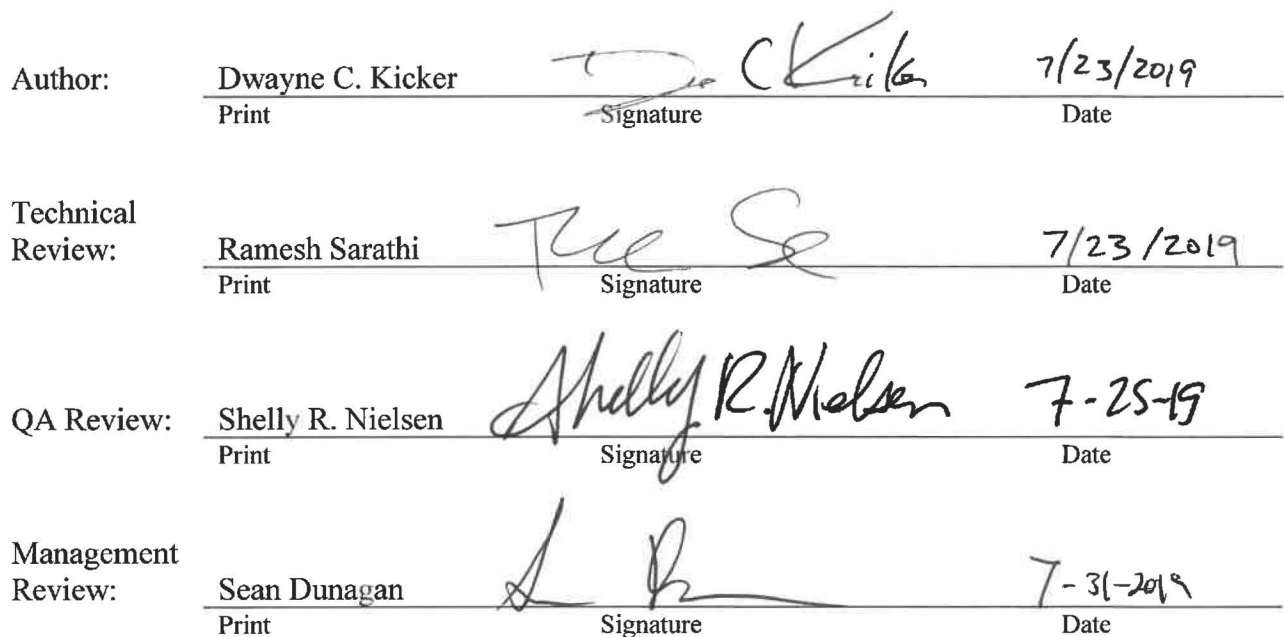 Author: Dwayne C. Kicker 7/23/2019
Print Signature Date
Technical
Review: Ramesh Sarathi 7/23/2019
Print Signature Date
QA Review: Shelly R. Nielsen Shelly R. Nielsen 7-25-19
Print Signature Date
Management
Review: Sean Dunagan 7-31-2019
Print Signature Date